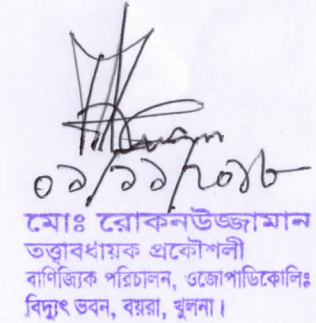 ০১/১১/২০১৮
মোঃ রোকনউজ্জামান
তত্ত্বাবধায়ক প্রকৌশলী
বাণিজ্যিক পরিচালন, ওজোপাডিকোলিঃ
বিদ্যুৎ ভবন, বয়রা, খুলনা।